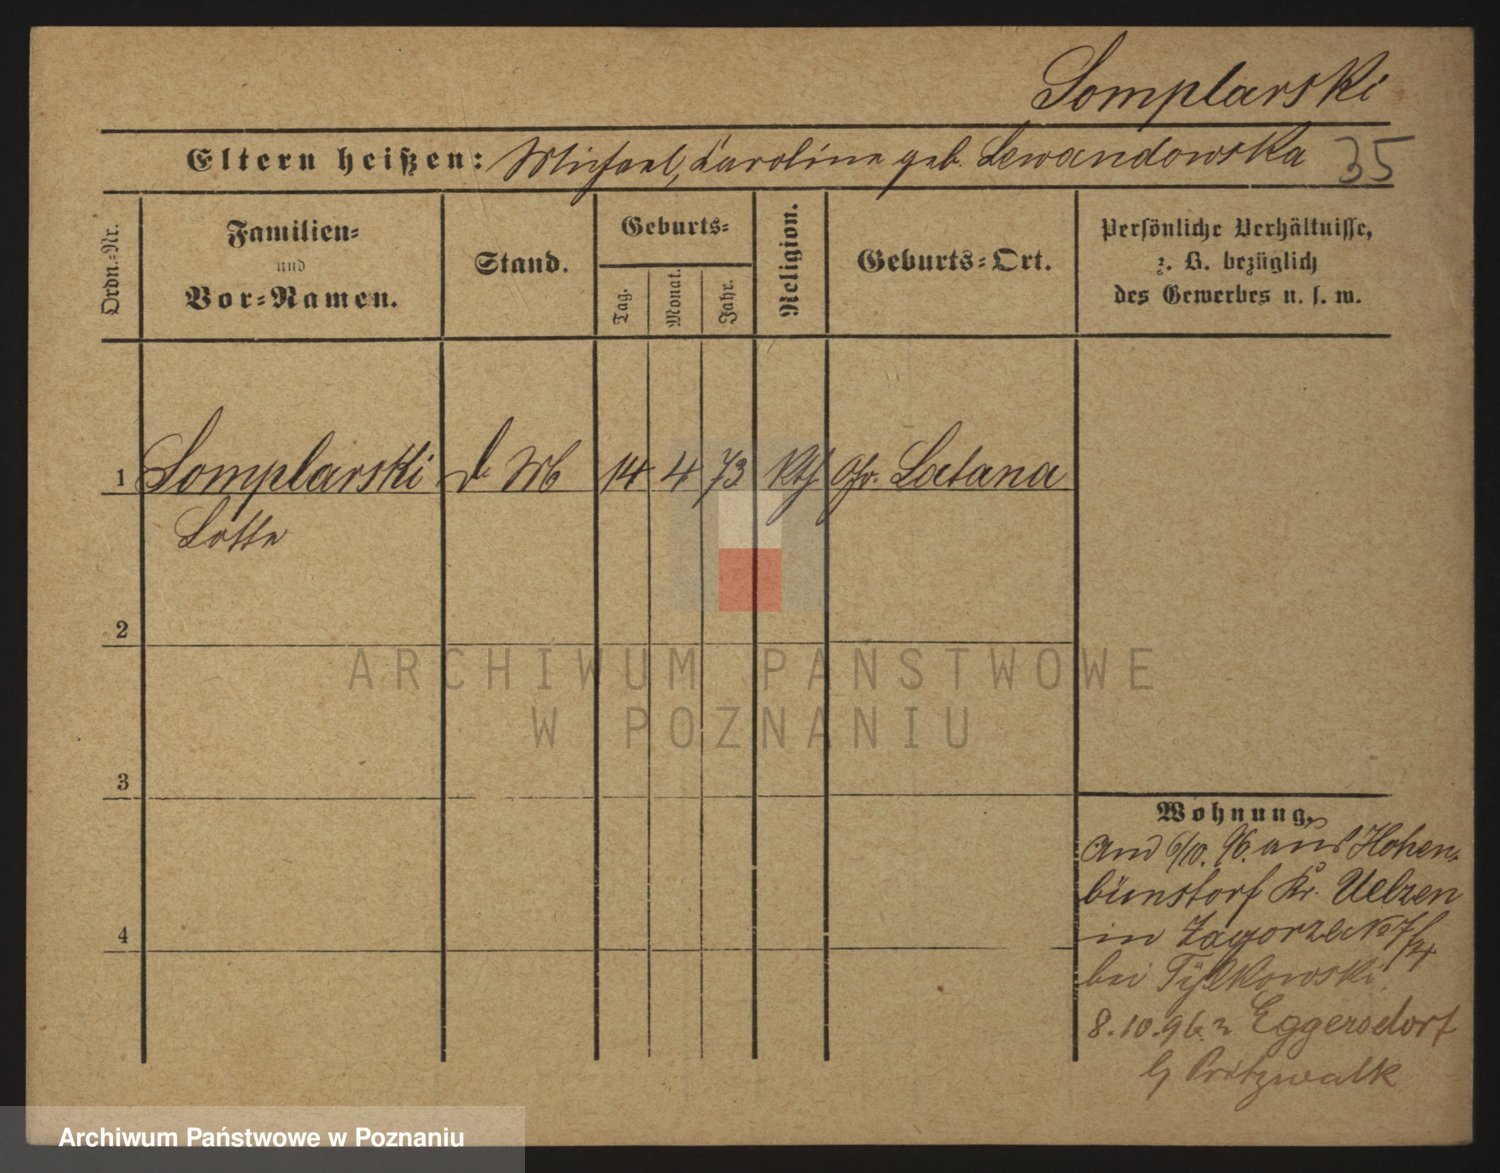 Somplarski
Eltern heißen: Michael, Karoline geb. Lewandowska 35
Ordn.-Nr.
Familien-
und
Vor-Namen.
Stand.
Geburts-
Tag.
Monat.
Jahr.
Religion.
Geburts-Ort.
Persönliche Verhältnisse,
z. B. bezüglich
des Gewerbes u. s. w.
1 Somplarski 14 4 73 Kth Gr. Latana
Lotte
2
3
4
Wohnung.
And 6/10. 96. aus Hohen-
bünstorf Kr. Uelzen
in Zagorze No 7/
bei Tylkowski
8.10.96 n Eggersdorf
b/ Pritzwalk
ARCHIWUM PAŃSTWOWE
W POZNANIU
Archiwum Państwowe w Poznaniu